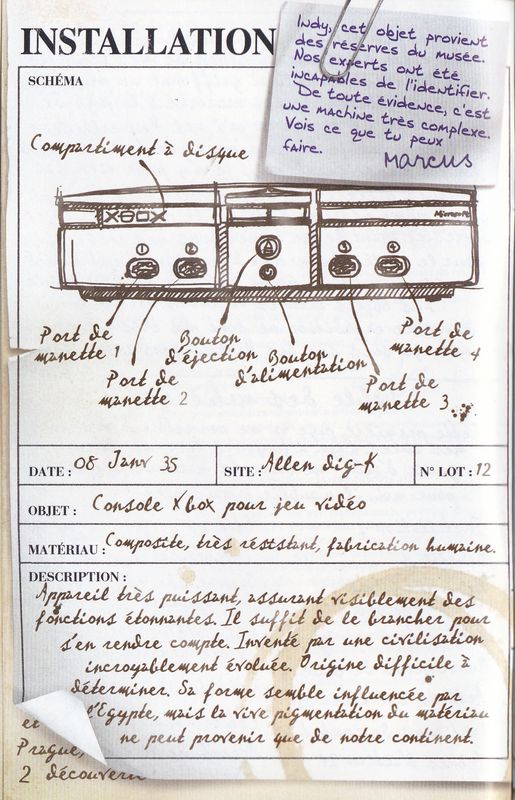 INSTALLATION
Indy, cet objet provient
des réserves du musée.
Nos experts ont été
incapables de l'identifier.
De toute évidence, c'est
une machine très complexe.
Vois ce que tu peux
faire.
Marcus
SCHÉMA
Compartiment à disque
XBOX
Microsoft
1 2 3 4
Port de
manette 1
Port de
manette 2
Bouton
d'éjection
Bouton
d'alimentation
Port de
manette 3
Port de
manette 4
DATE : 08 Janv 35
SITE : Allen dig-K
N° LOT : 12
OBJET : Console Xbox pour jeu vidéo
MATÉRIAU : Composite, très résistant, fabrication humaine.
DESCRIPTION :
Appareil très puissant, assurant visiblement des
fonctions étonnantes. Il suffit de le brancher pour
s'en rendre compte. Inventé par une civilisation
incroyablement évoluée. Origine difficile à
déterminer. Sa forme semble influencée par
l'Egypte, mais la vive pigmentation du matériau
ne peut provenir que de notre continent.
et
Prague,
2 découver